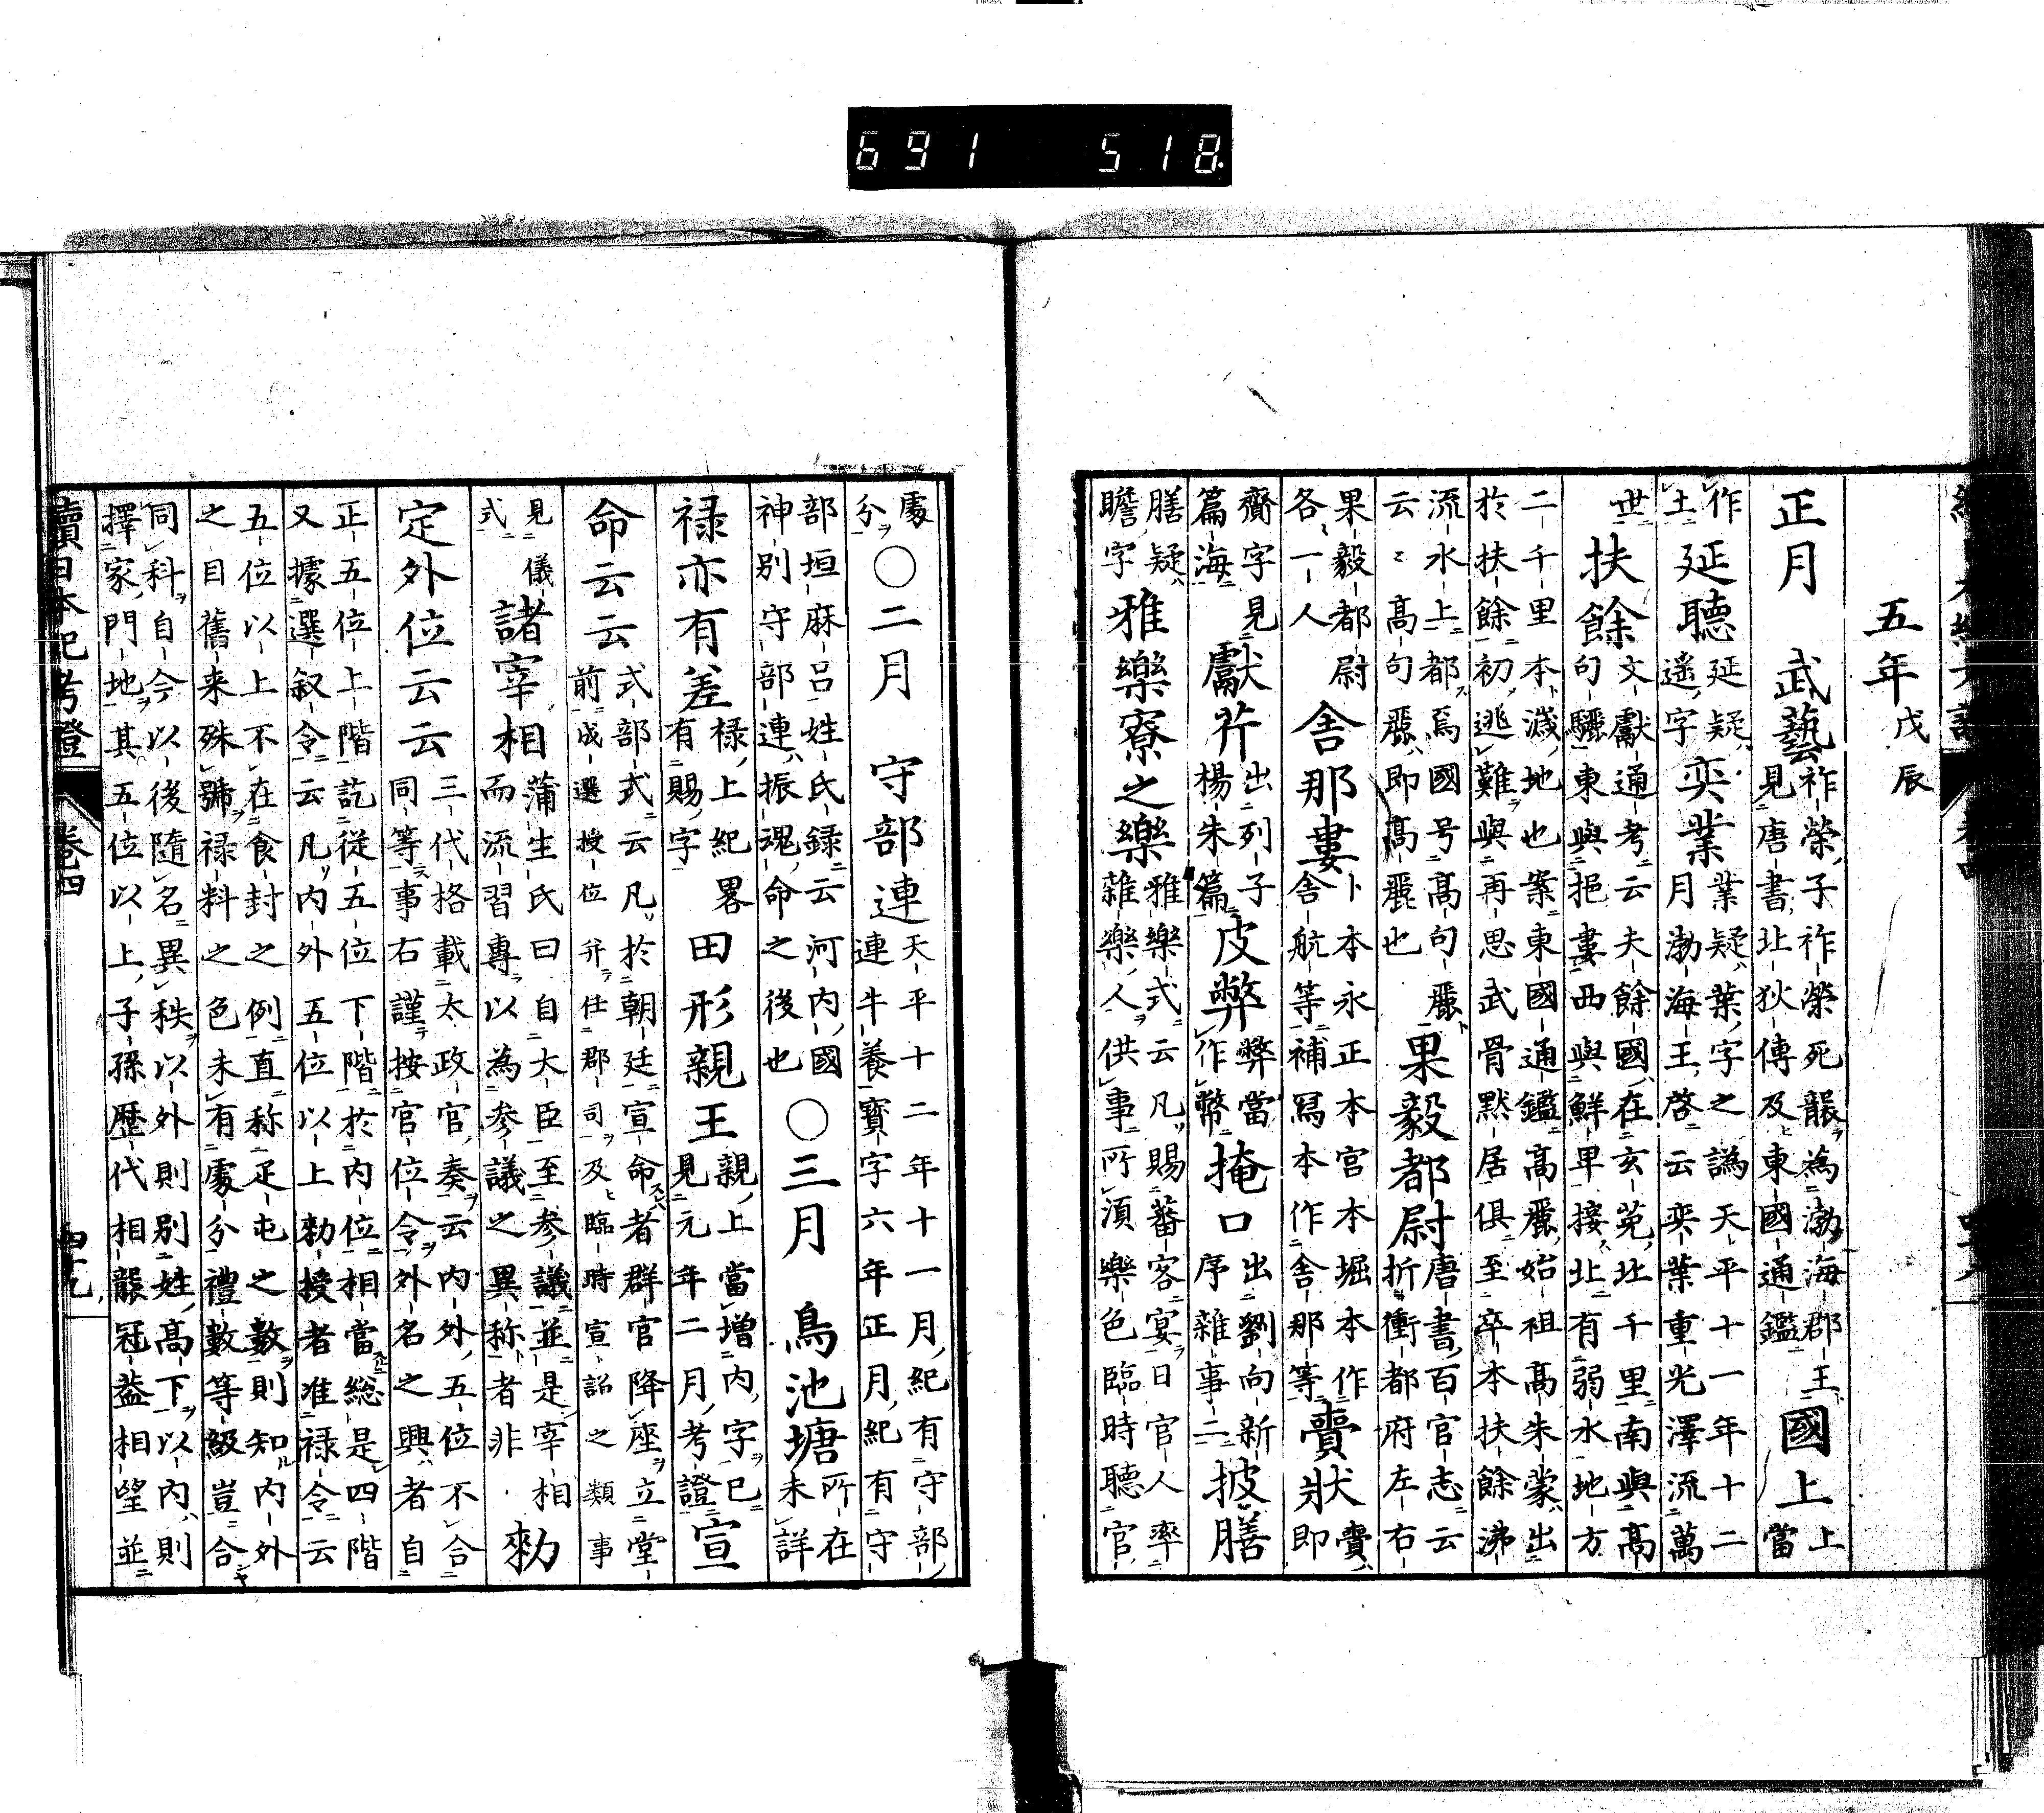 691 518
五年戊辰
正月 武藝祚榮子祚榮死襲為渤海郡王
見唐書北狄傳及東國通鑑國上上
當
作
土延聽延疑
遙字奕業業疑葉字之譌天平十一年十二
月渤海王啓云奕葉重光澤流萬
世扶餘文獻通考云夫餘國在玄菟北千里南與高
句驪東與挹婁西與鮮卑接北有弱水地方
二千里本濊地也案東國通鑑高麗始祖高朱蒙出
於扶餘初逃難與再思武骨默居俱至卒本扶餘沸
流水上都焉國号高句麗
云云高句麗即高麗也果毅都尉唐書百官志云
折衝都府左右
果毅都尉
各一人舍那婁卜本永正本宮本堀本作
舍航等補冩本作舍那等賷狀賷
即
齎字見
篇海獻斧出列子
楊朱篇皮弊弊當
作幣掩口出劉向新
序雜事二披膳
膳疑
贍字雅樂寮之樂雅樂式云凡賜蕃客宴日官人率
雜樂人供事所須樂色臨時聽官
處
分〇二月 守部連天平十二年十一月紀有守部
連牛養寶字六年正月紀有守
部垣麻呂姓氏録云河内國
神別守部連振魂命之後也〇三月 鳥池塘所在
未詳
禄亦有差禄上紀畧
有賜字田形親王親上當増内字已
見元年二月考證宣
命云云式部式云凡於朝廷宣命者群官降座立堂
前成選授位并任郡司及臨時宣詔之類事
見儀
式諸宰相蒲生氏曰自大臣至参議並是宰相
而流習專以為参議之異称者非勑
定外位云云三代格載太政官奏云内外五位不合
同等事右謹按官位令外名之興者自
正五位上階訖從五位下階於内位相當総是四階
又據選叙令云凡内外五位以上勑授者准禄令云
五位以上不在食封之例直称疋屯之數則知内外
之目舊来殊號禄料之色未有處分禮數等級豈合
同科自今以後隨名異秩以外則別姓高下以内則
擇家門地其五位以上子孫歴代相襲冠蓋相望並
續日本紀考證 卷四 四十九